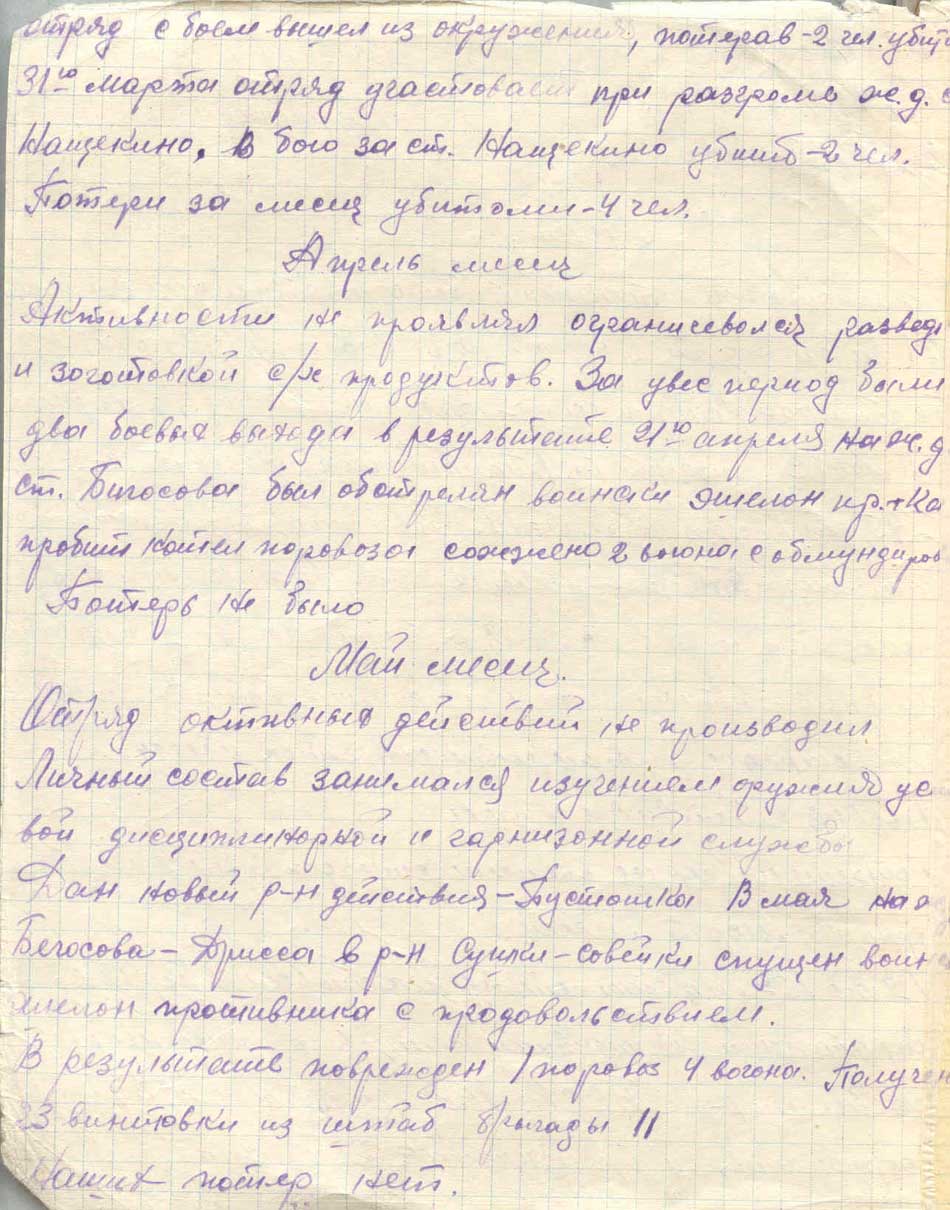 отряд с боем вышел из окружения, потеряв-2 чел. убит
31го марта отряд участвовал при разгроме ж.д.
Нащекино. В бою за ст. Нащекино убито-2 чел.
Потери за месяц убитыми-4 чел.
Апрель месяц
Активности не проявлял ограничевался развед
и заготовкой с/х продуктов. За увес период были
два боевых выхода в результате 21го апреля на ж.д
ст. Бигосова был обстрелян воински эшелон пр.-ка
пробит котел паровоза сожжено 2 вагона с обмундиров
Потерь не было
Май месяц.
Отряд активных действий не производил
Личный состав занимался изучением оружия ус
вой дисциплинарной и гарнизонной службы
Дан новый р-н действия-Пустошка В мая на
Бегосова-Дрисса в р-н Сушки-Совейки спущен воин
эшелон противника с продовольствием.
В результате поврежден 1 паровоз 4 вагона. Получен
23 винтовки из штаб бригады
Наших потер нет.